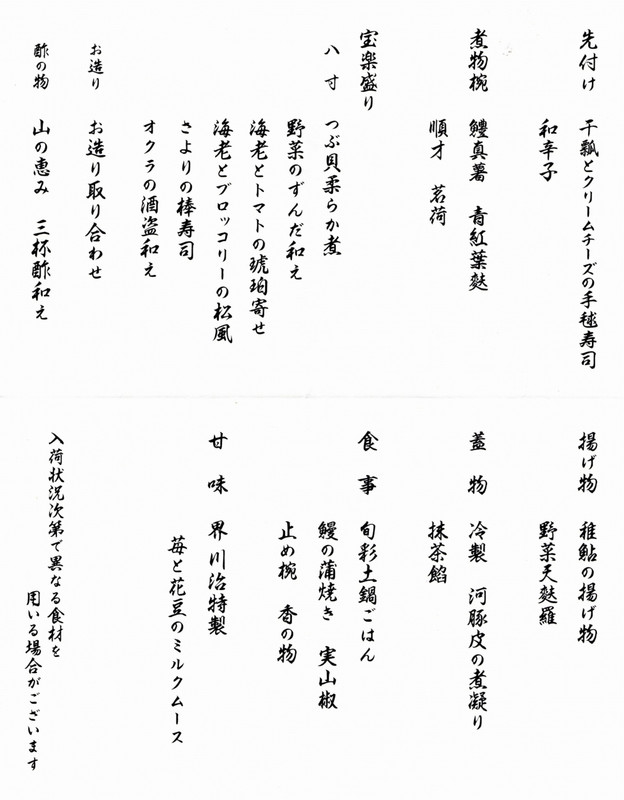 先付け 干瓢とクリームチーズの手毬寿司
和辛子
煮物椀 鱧真薯 青紅葉麩
順才 茗荷
宝楽盛り
八寸 つぶ貝柔らか煮
野菜のずんだ和え
海老とトマトの琥珀寄せ
海老とブロッコリーの松風
さよりの棒寿司
オクラの酒盗和え
お造り お造り取り合わせ
酢の物 山の恵み 三杯酢和え
揚げ物 稚鮎の揚げ物
野菜天麩羅
蓋物 冷製 河豚皮の煮凝り
抹茶餡
食事 旬彩土鍋ごはん
鰻の蒲焼き 実山椒
止め椀 香の物
甘味 界川治特製
苺と花豆のミルクムース
入荷状況次第で異なる食材を
用いる場合がございます